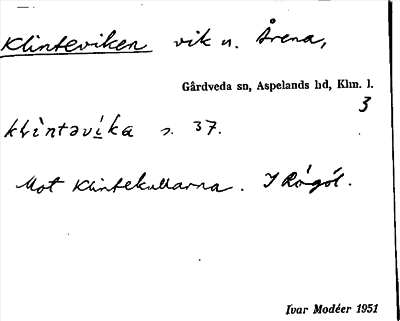 Klinteviken vik n. Årena,
Gårdveda sn, Aspelands hd, Klm. l.
3
s. 37.
Mot Klintekullarna. I Rågöl.
Ivar Modéer 1951